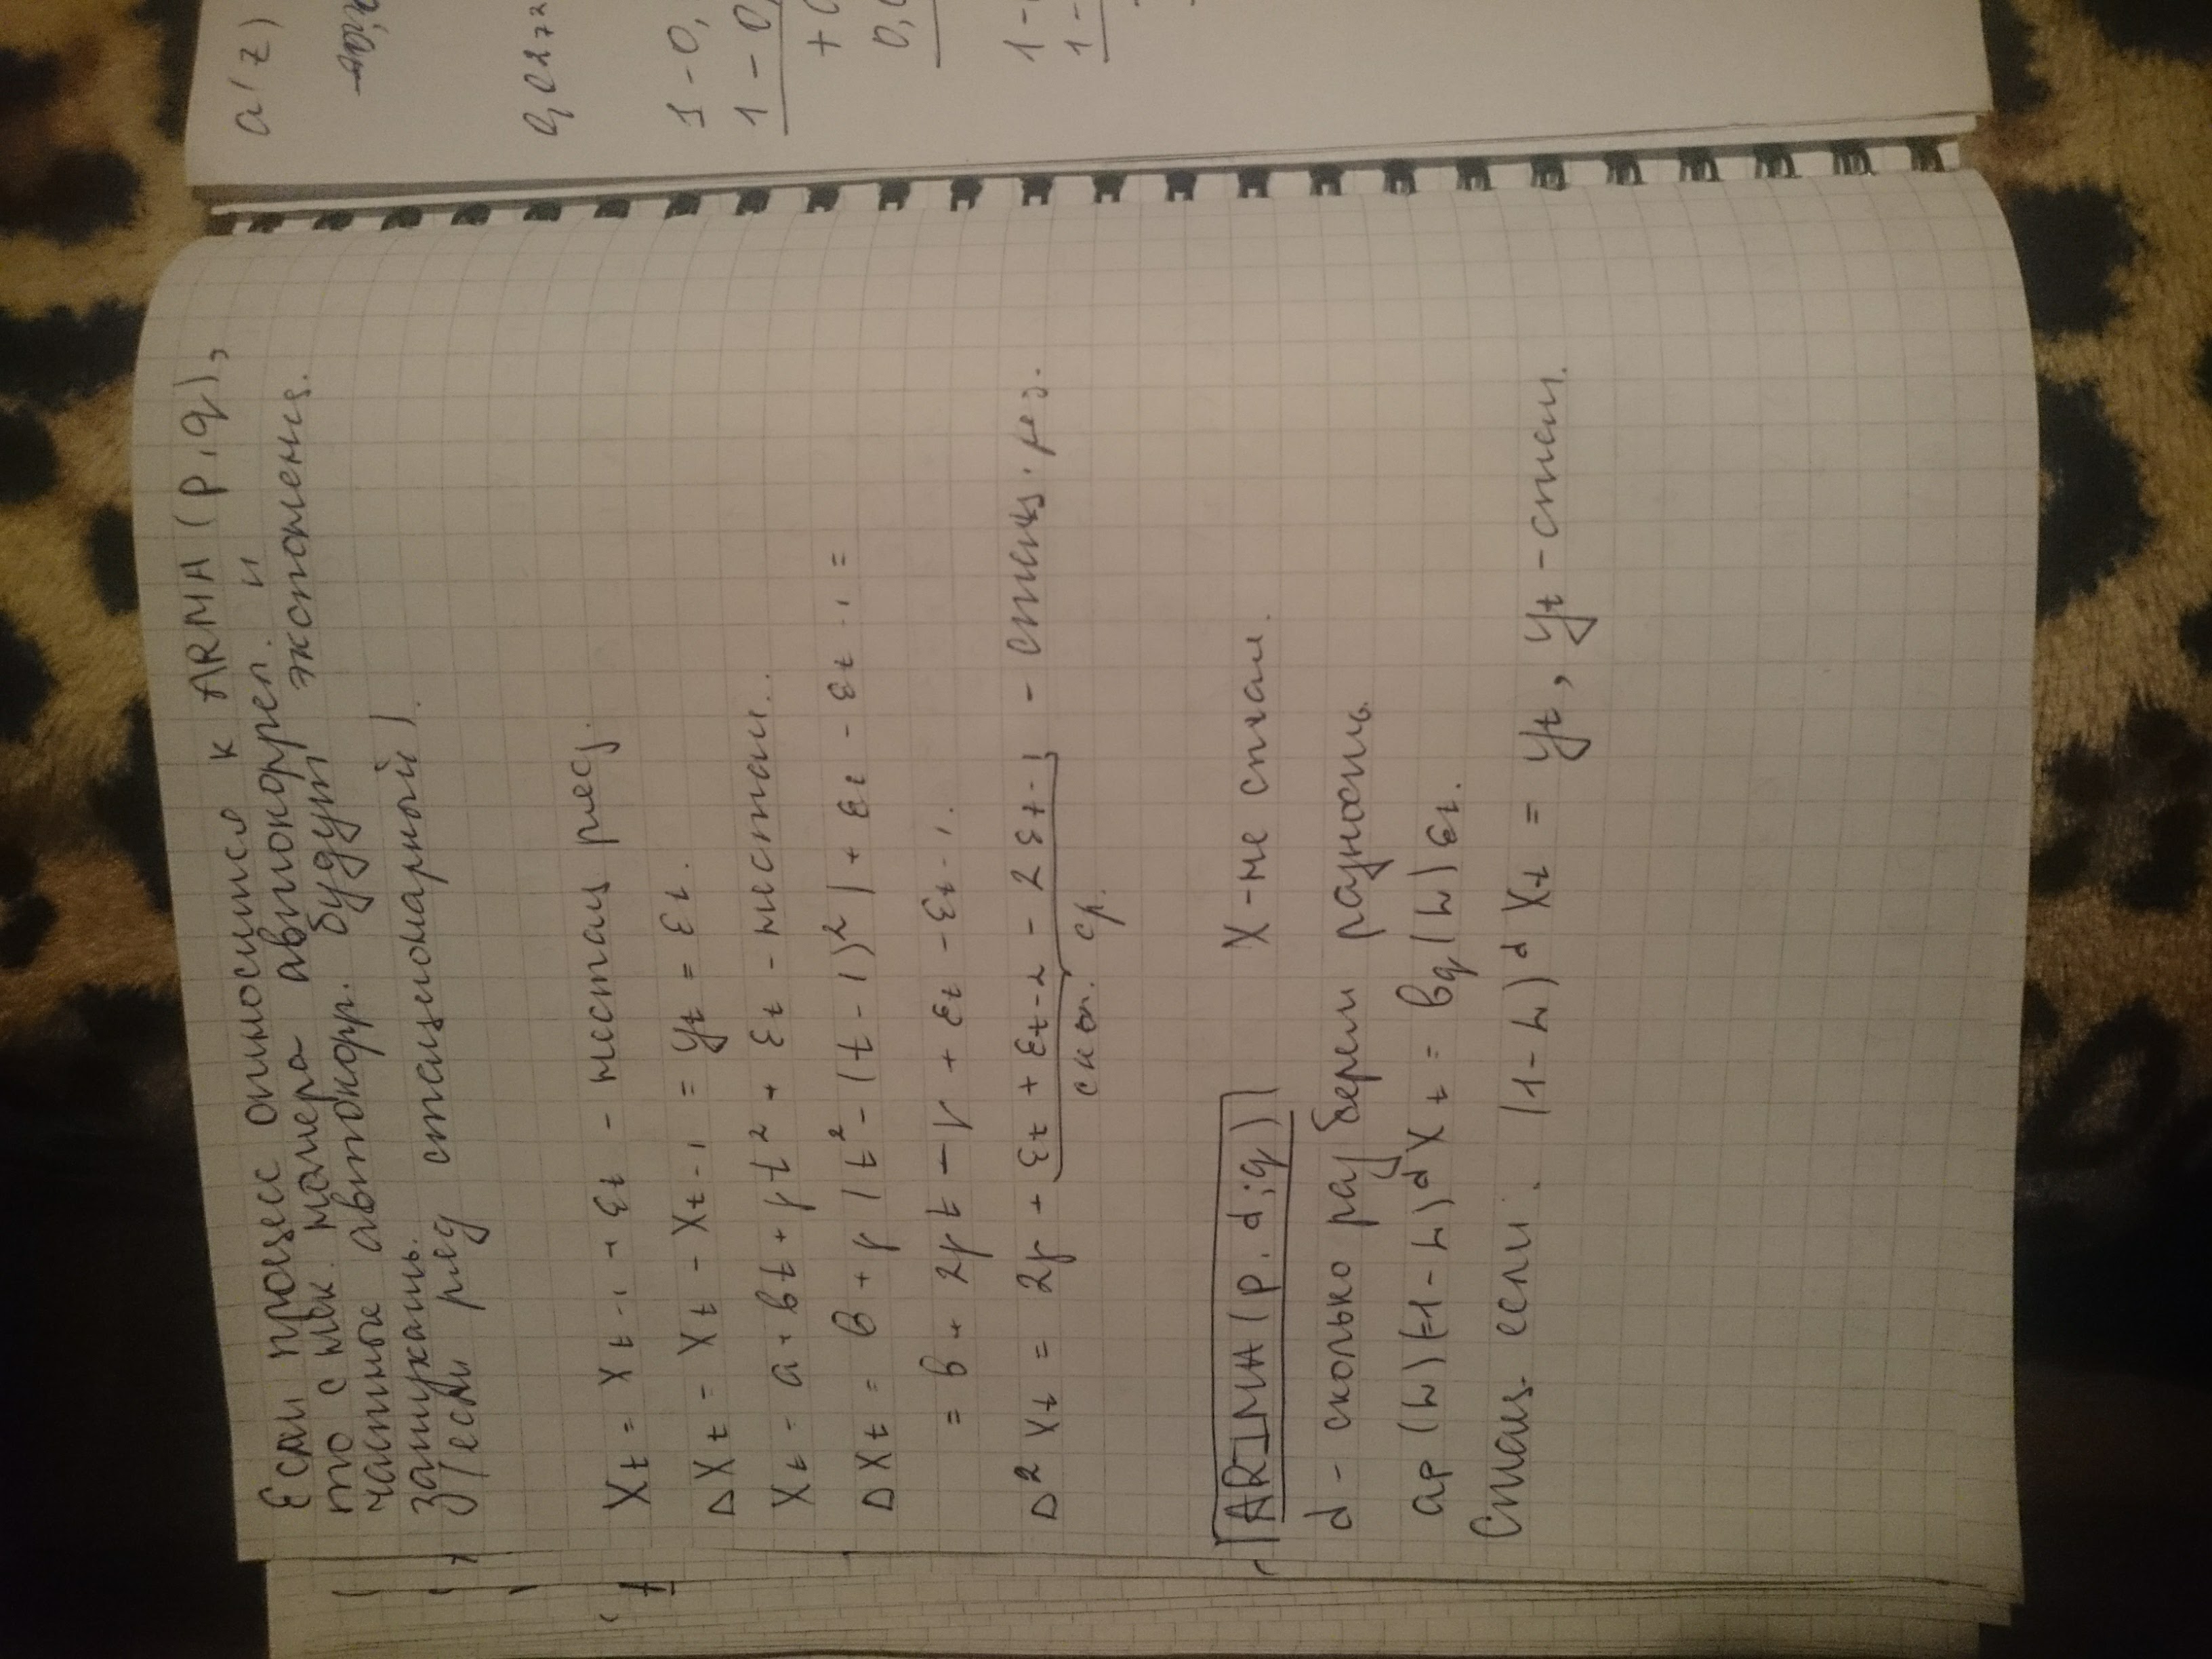 Если процесс относится к ARMA(p,q),
то с нек. номера автокоррел. и
частные автокорр. будут экспоненц.
затухать.
(если ряд стационарный).
Xt = Xt-1 + εt - нестац ряд.
ΔXt = Xt - Xt-1 = yt = εt.
Xt = a + bt + γt² + εt - нестац.
ΔXt = b + γ(t² - (t-1)²) + εt - εt-1 =
= b + 2γt - γ + εt - εt-1.
Δ²Xt = 2γ + εt + εt-2 - 2εt-1 - стац. ряд.
ср.
ARIMA(p.d;q) X - не стац.
d - сколько раз берем разность
ap(L)(1-L)^d Xt = bq(L)εt.
Стац. если (1-L)^d Xt = yt, yt - стац.
a(z)
1-0,
1-0,
+0
0,0
1-
1-